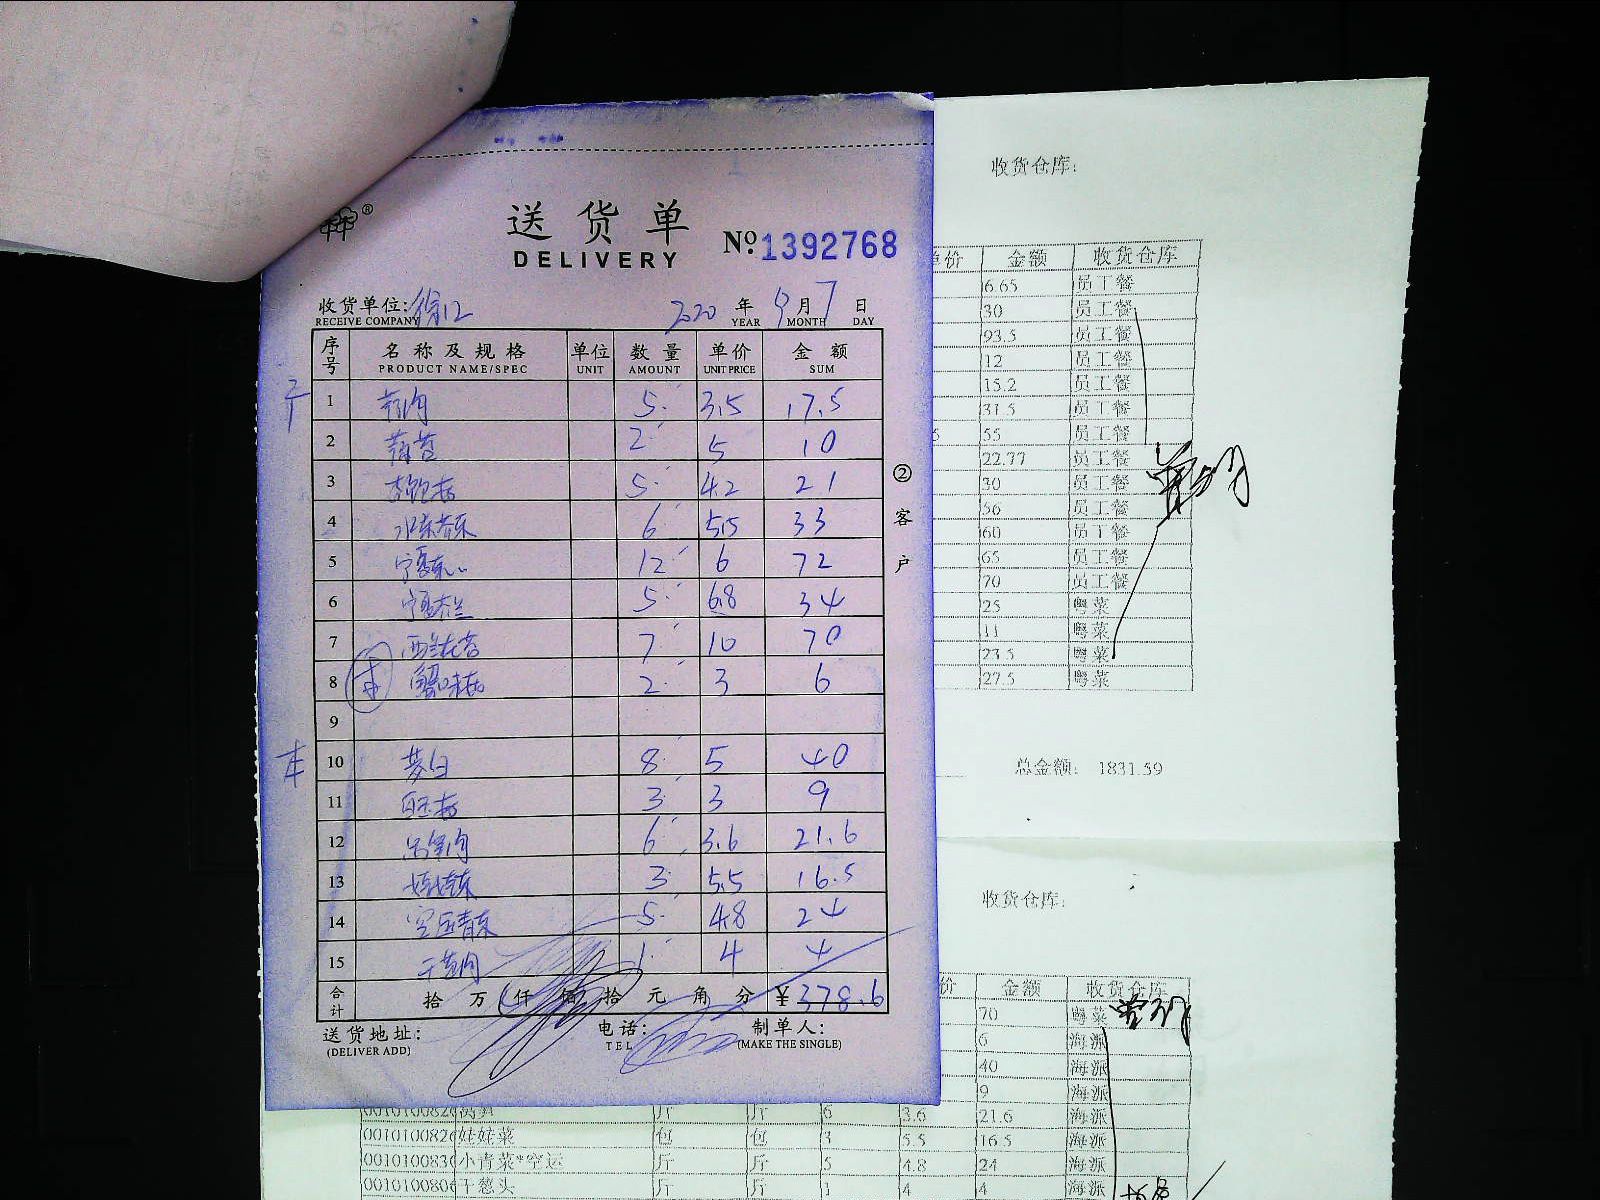 送货单
DELIVERY
№ 1392768
收货单位:徐汇 2020 年 9 月 7 日
RECEIVE COMPANY YEAR MONTH DAY
序号 名称及规格 单位 数量 单价 金额
PRODUCT NAME/SPEC UNIT AMOUNT UNIT PRICE SUM
1 5 3.5 17.5
2 2 5 10
3 5 4.2 21
4 6 5.5 33
5 12 6 72
6 5 6.8 34
7 西兰花苔 7 10 70
8 蟹味菇 2 3 6
9
10 茭白 8 5 40
11 白玉菇 3 3 9
12 6 3.6 21.6
13 娃娃菜 3 5.5 16.5
14 空运青菜 5 4.8 24
15 1 4 4
合计 拾 万 仟 佰 拾 元 角 分 ¥378.6
送货地址: 电话: 制单人:
(DELIVER ADD) TEL (MAKE THE SINGLE)
②客户
收货仓库:
单价 金额 收货仓库
6.65 员工餐
30 员工餐
93.5 员工餐
12 员工餐
15.2 员工餐
31.5 员工餐
55 员工餐
22.77 员工餐
30 员工餐
56 员工餐
60 员工餐
65 员工餐
70 员工餐
25 粤菜
11 粤菜
23.5 粤菜
27.5 粤菜
总金额: 1831.59
收货仓库:
价 金额 收货仓库
70 粤菜
6 海派
40 海派
9 海派
001010082 莴笋 斤 斤 6 3.6 21.6 海派
001010082 娃娃菜 包 包 3 5.5 16.5 海派
001010083 小青菜*空运 斤 斤 5 4.8 24 海派
001010080 干葱头 斤 斤 1 4 4 海派